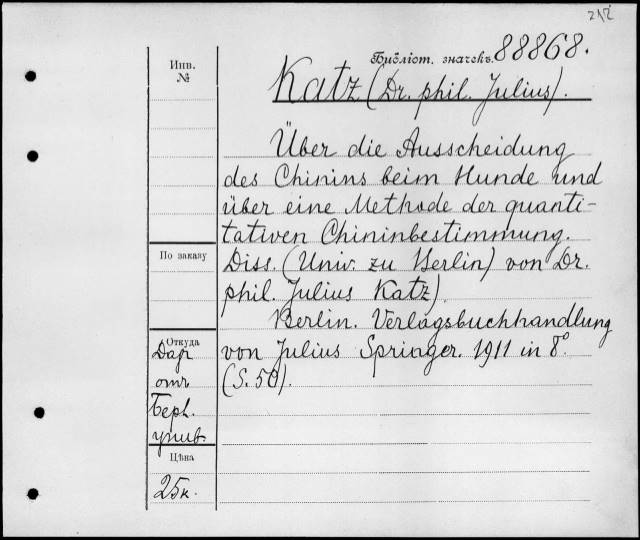 212
Библіот. значекъ 88868.
Инв.
№
Katz (Dr. phil. Julius).
Über die Ausscheidung
des Chinins beim Hunde und
über eine Methode der quanti-
tativen Chininbestimmung.
По заказу
Diss. (Univ. zu Berlin) von Dr.
phil. Julius Katz).
Berlin. Verlagsbuchhandlung
Откуда
von Julius Springer. 1911 in 8°.
(S. 50).
Дар
отъ
Берл.
унив.
Цѣна
25к.